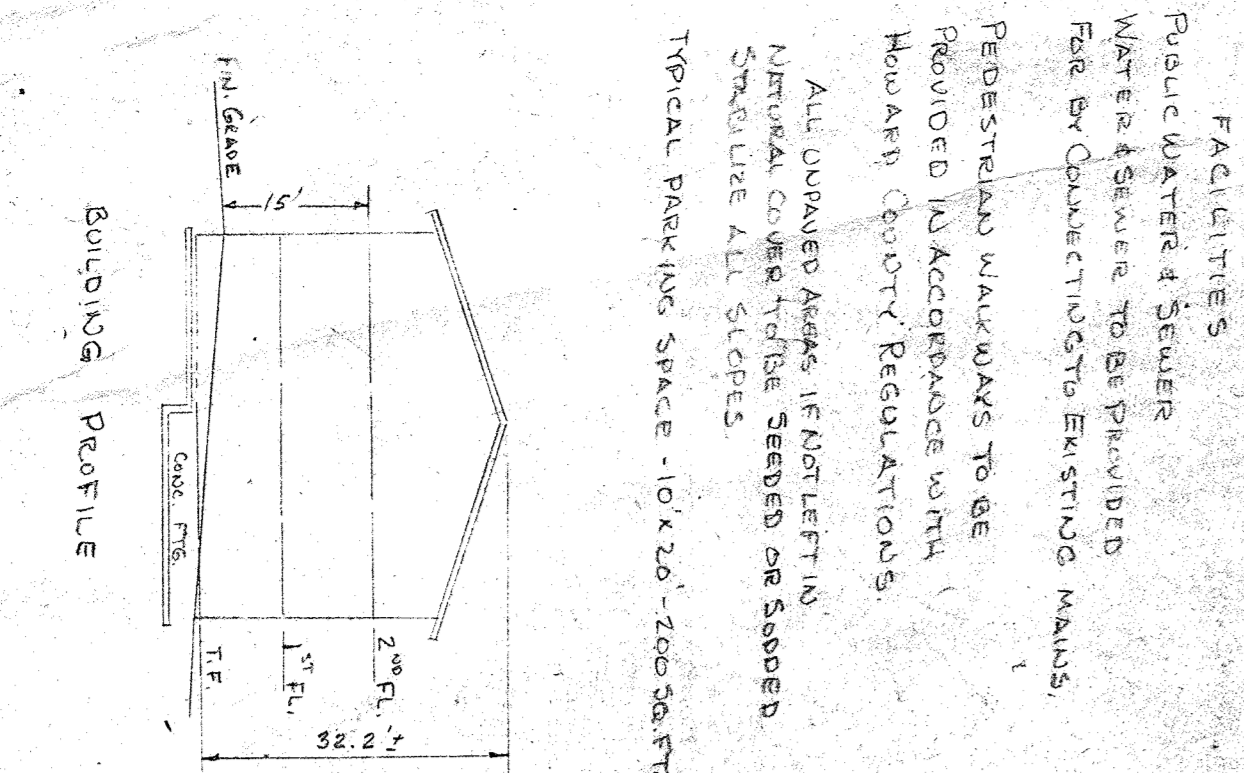 FACILITIES
PUBLIC WATER & SEWER
WATER & SEWER TO BE PROVIDED
FOR BY CONNECTING TO EXISTING MAINS.
PEDESTRIAN WALKWAYS TO BE
PROVIDED IN ACCORDANCE WITH
HOWARD COUNTY REGULATIONS.
ALL UNPAVED AREAS IF NOT LEFT IN
NATURAL COVER TO BE SEEDED OR SODDED
STABILIZE ALL SLOPES.
TYPICAL PARKING SPACE - 10' x 20' - 200 SQ. FT.
2ND FL.
1ST FL.
T.F.
32.2'±
15'
FIN. GRADE
CONC. FTG.
BUILDING PROFILE